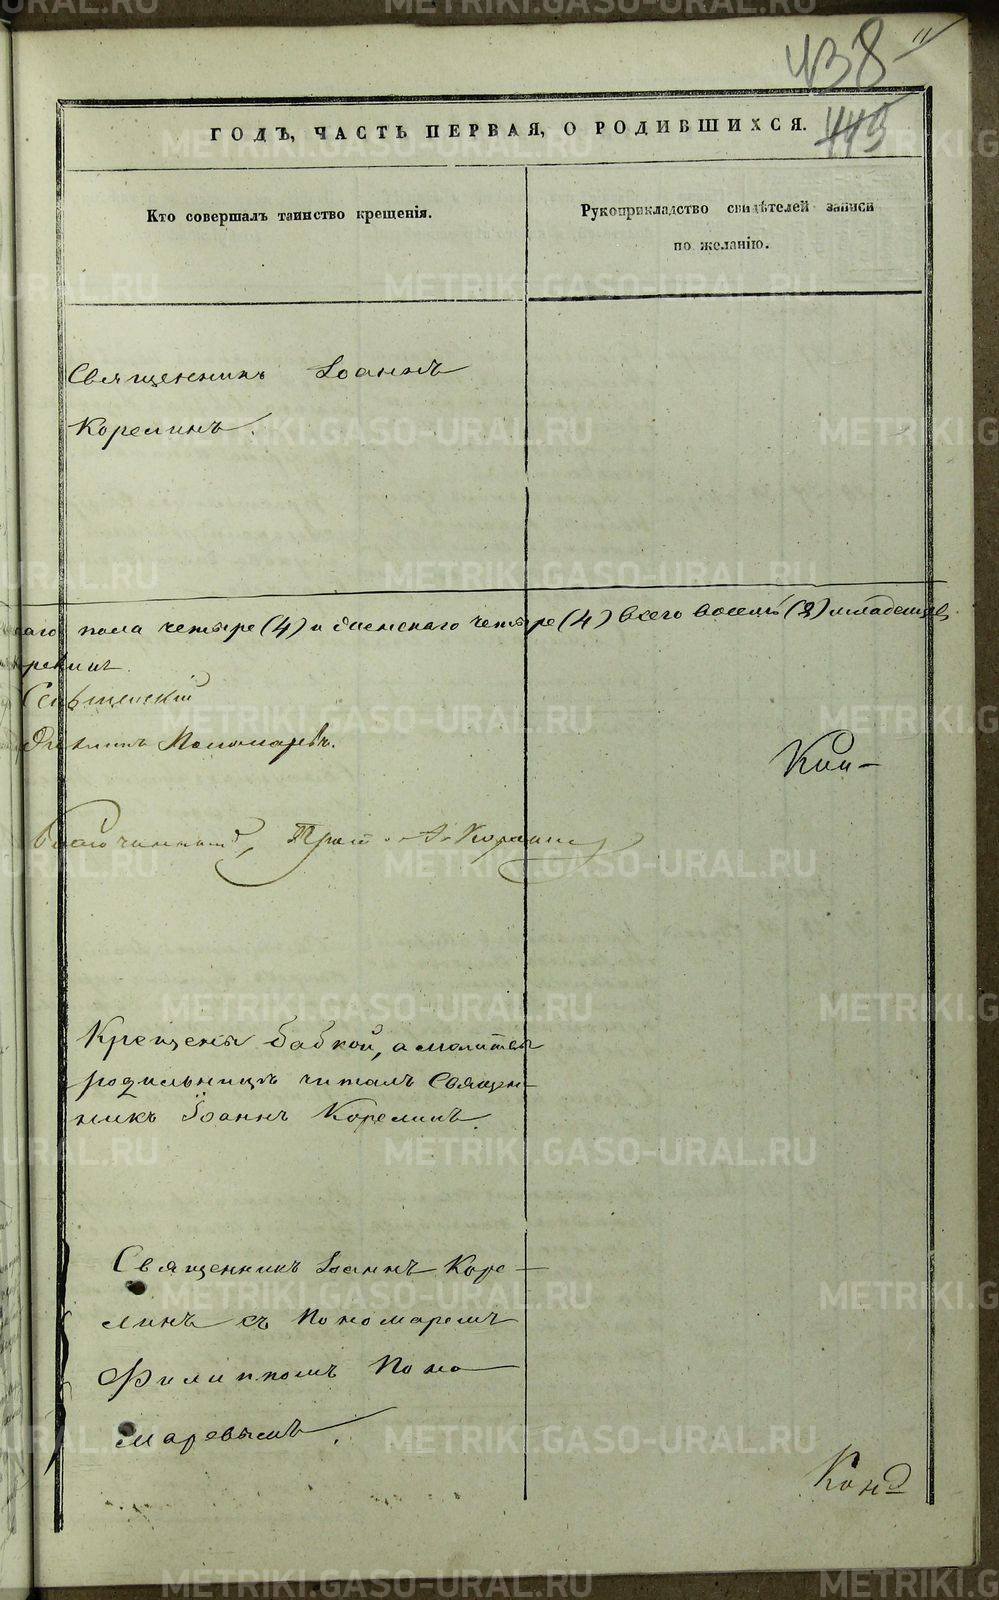 438
11
ГОДЪ, ЧАСТЬ ПЕРВАЯ, О РОДИВШИХСЯ.
Кто совершалъ таинство крещенія.
Рукоприкладство свидѣтелей записи
по желанію.
Священникъ Іоаннъ
Корелинъ.
пола четыре (4) и женскаго четыре (4) всего восемь (8) младенцев
Пономаревъ.
Благочинный, Прот. А. Корелинъ
Крещены бабкой, а молитвы
родильницѣ читалъ Священ-
никъ Іоаннъ Корелинъ.
Священникъ Іоаннъ Коре-
линъ съ Пономаремъ
Филиппомъ Поно
маревымъ.
METRIKI.GASO-URAL.RU